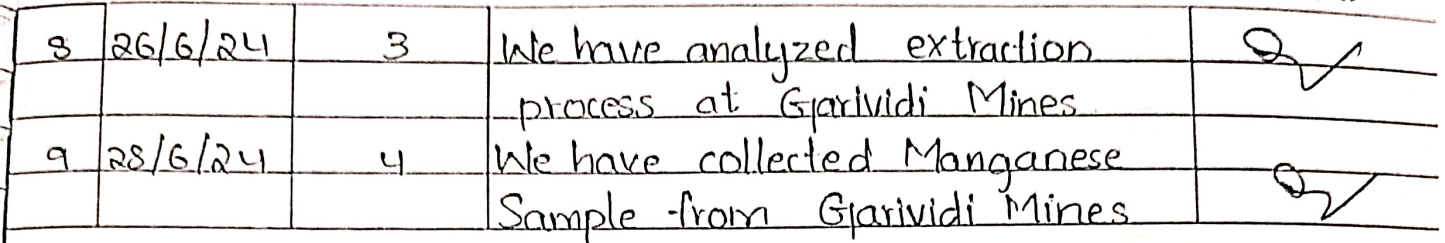 8 26/6/24 3 We have analyzed extraction
process at Garividi Mines
9 28/6/24 4 We have collected Manganese
Sample from Garividi Mines